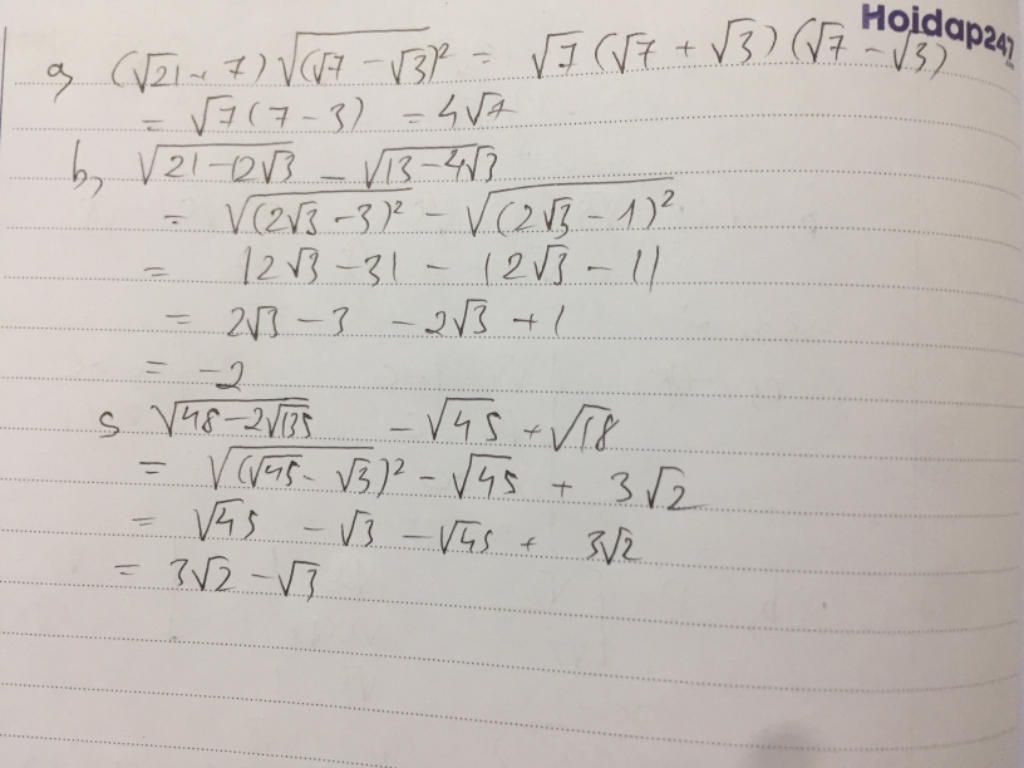 Hoidap247
a, (√21 + 7) √(√7 - √3)² = √7 (√7 + √3) (√7 - √3)
= √7 (7 - 3) = 4√7
b, √21 - 12√3 - √13 - 4√3
= √(2√3 - 3)² - √(2√3 - 1)²
= |2√3 - 3| - |2√3 - 1|
= 2√3 - 3 - 2√3 + 1
= -2
c √48 - 2√135 - √45 + √18
= √(√45 - √3)² - √45 + 3√2
= √45 - √3 - √45 + 3√2
= 3√2 - √3